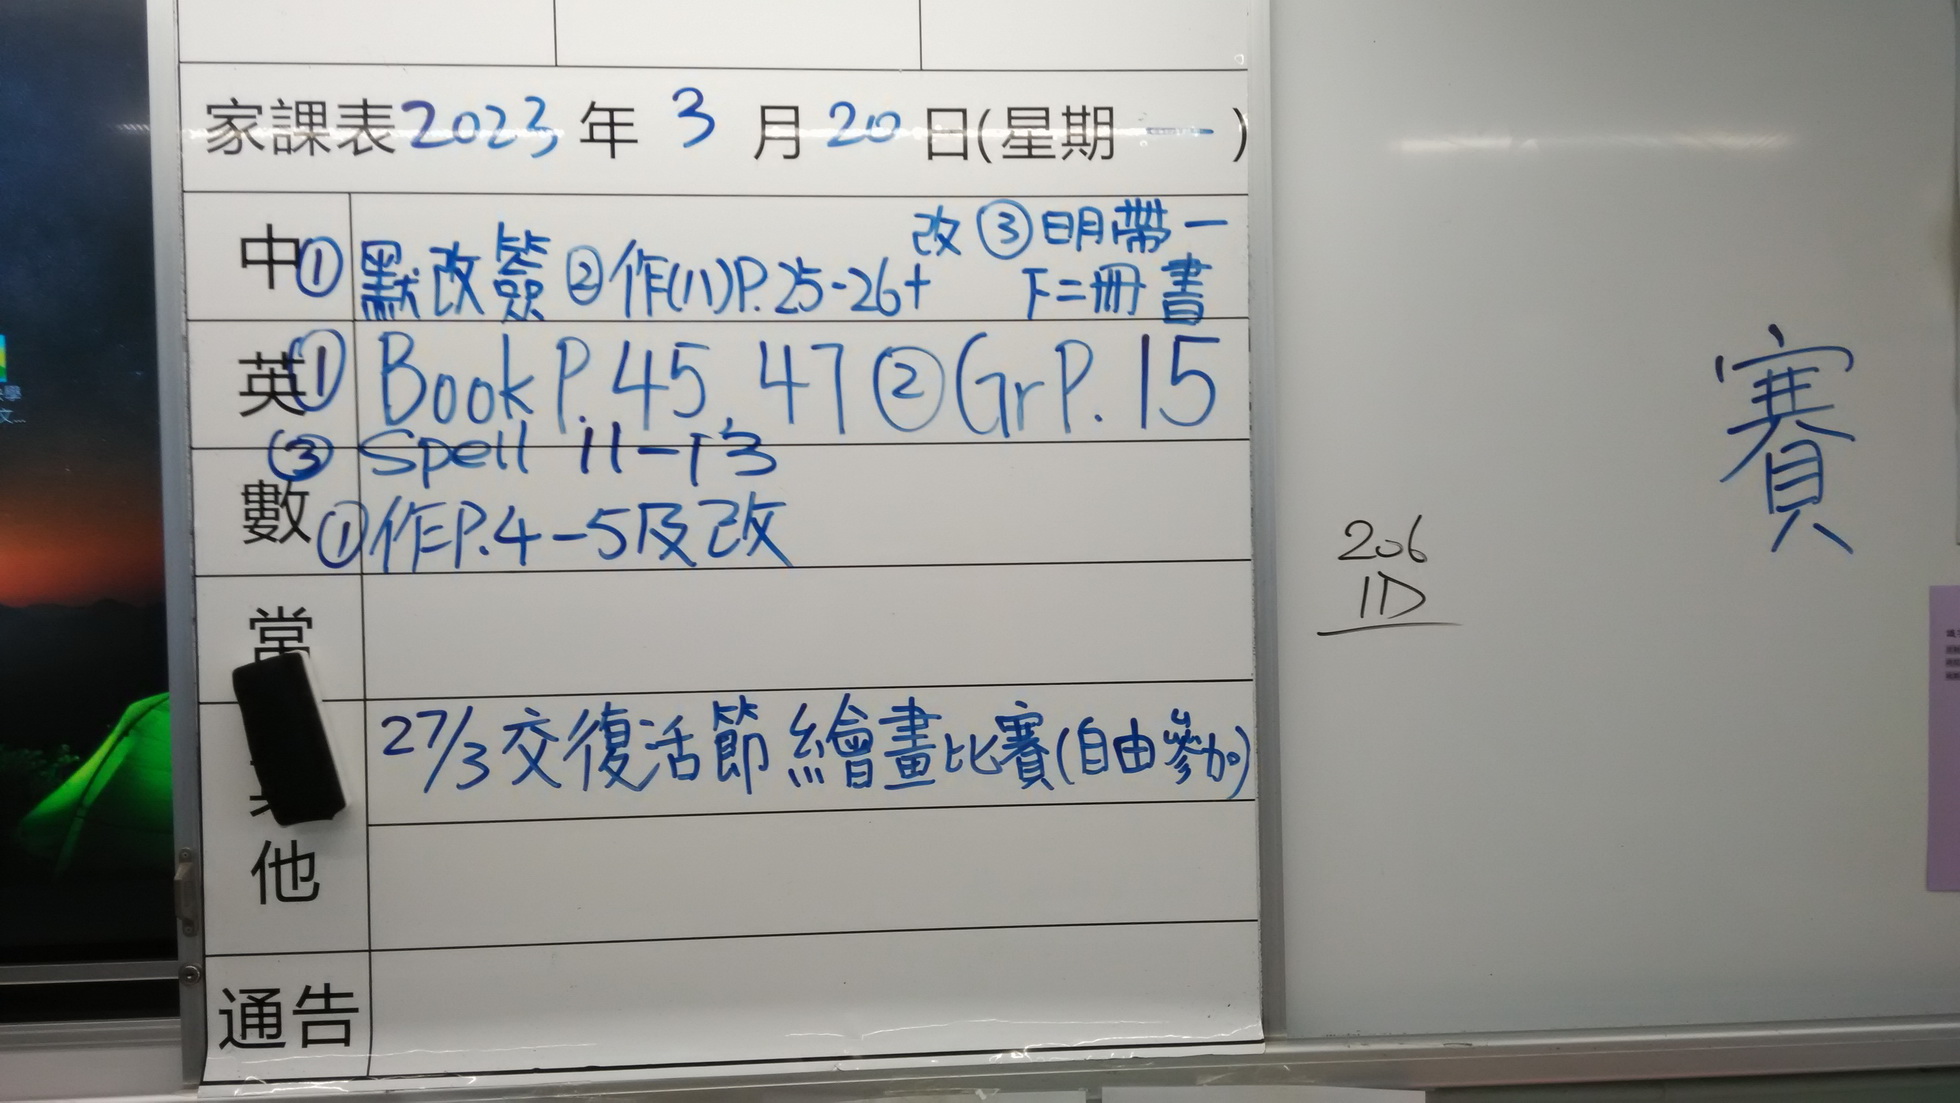 家課表2023年3月20日(星期一)
中①默改簽②作(八)P.25-26+改③明帶一下二冊書
英①Book P.45,47②Gr P.15
③Spell 11-13
數①作P.4-5及改
常
27/3交復活節繪畫比賽(自由參加)
其他
通告
賽
206
1D